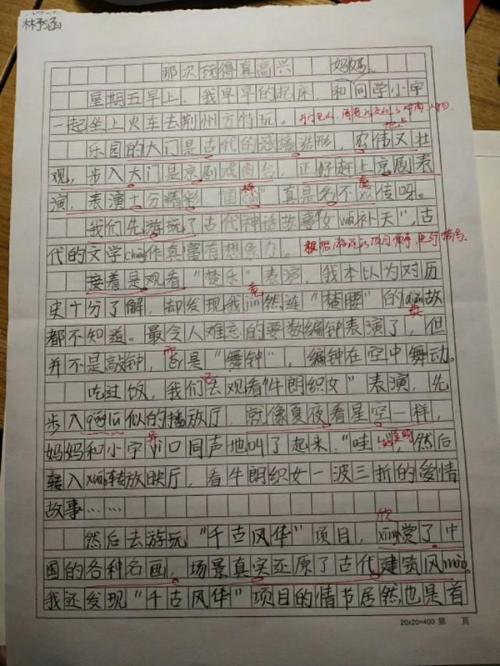 林予涵
那次玩得真高兴
妈妈
星期五早上,我早早的起床,和同学小宇
一起坐上火车去荆州方特玩。
乐园的大门是古代的建筑造形,宏伟又壮
观,步入大门是京剧戏商台,正好赶上京剧表
演,表演十分精彩,"国粹"真是名不虚传呀。
我们先游玩了古代神话故事"女wā补天",古
代的文学chuàng作真富有想象力。
接着是观看"楚乐"表演,我本以为对历
史十分了解,却发现我jìng然连"楚腾"的diǎn故
都不知道。最令人难忘的要数编钟表演了,但
并不是敲钟,而是"舞钟",编钟在空中舞动。
吃过饭,我们去观看"牛朗织女"表演,先
步入qióng似的播放厅,就像夏夜看星空一样,
妈妈和小宇yì口同声地叫了起来,"哇",然后
转入xuán转放映厅,看牛朗织女一波三折的爱情
故事……
然后去游玩"千古风华"项目,xīng赏了中
国的各种名画,场景真实还原了古代建筑风mào,
我还发现"千古风华"项目的情书居然也是首
20×20=400 第 页